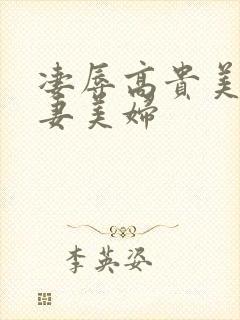 凄辱高贵美
妻美婦
李英姿